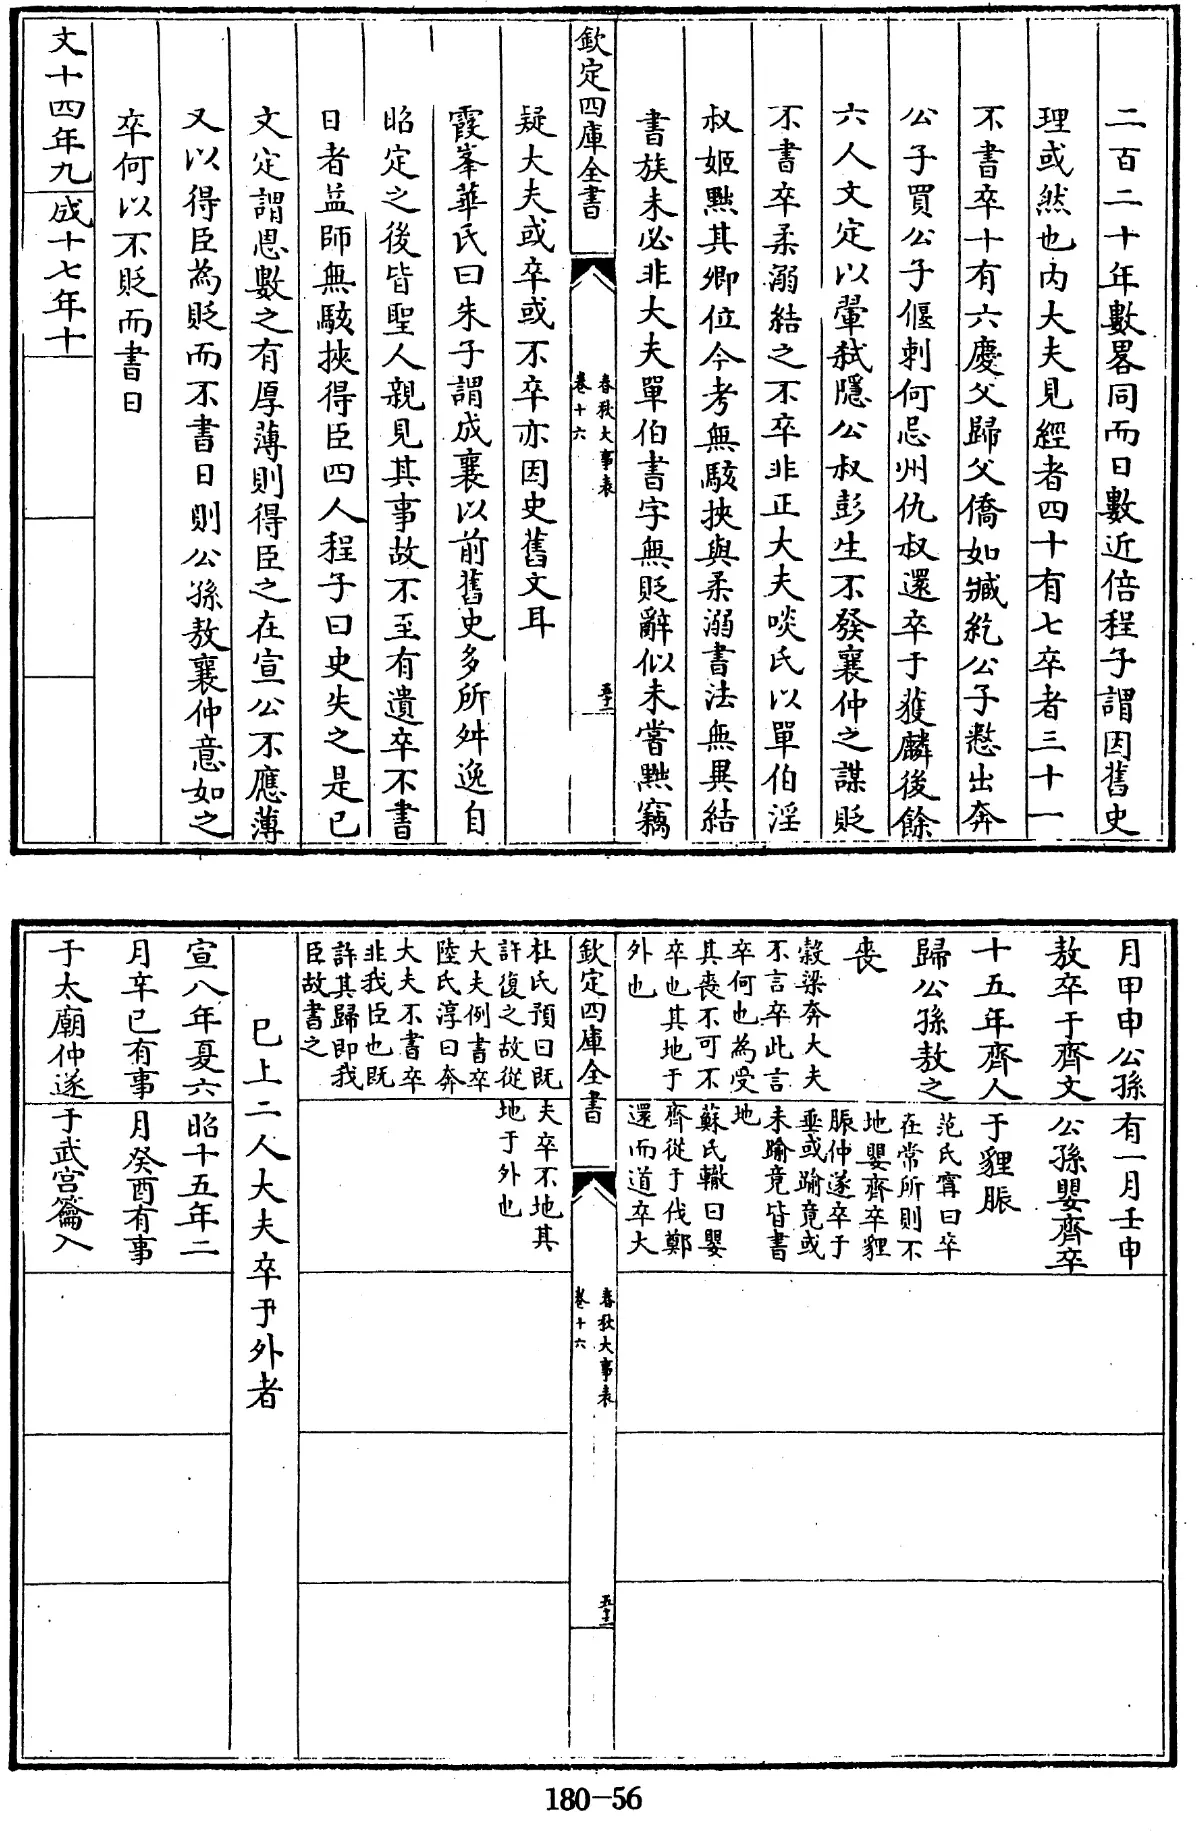 二百二十年數畧同而日數近倍程子謂因舊史
理或然也内大夫見經者四十有七卒者三十一
不書卒十有六慶父歸父僑如臧紇公子憖出奔
公子買公子偃刺何忌州仇叔還卒于獲麟後餘
六人文定以翬弑隱公叔彭生不發襄仲之謀貶
不書卒柔溺結之不卒非正大夫啖氏以單伯淫
叔姬黜其卿位今考無駭挾與柔溺書法無異結
書族未必非大夫單伯書字無貶辭似未嘗黜竊
欽定四庫全書
春秋大事表
卷十六
五十二
疑大夫或卒或不卒亦因史舊文耳
霞峯華氏曰朱子謂成襄以前舊史多所舛逸自
昭定之後皆聖人親見其事故不至有遺卒不書
日者益師無駭挾得臣四人程子曰史失之是已
文定謂恩數之有厚薄則得臣之在宣公不應薄
又以得臣為貶而不書日則公孫敖襄仲意如之
卒何以不貶而書日
文十四年九
成十七年十
月甲申公孫
敖卒于齊文
十五年齊人
歸公孫敖之
喪
榖梁奔大夫
不言卒此言
卒何也為受
其喪不可不
卒也其地于
外也
有一月壬申
公孫嬰齊卒
于貍脤
范氏甯曰卒
在常所則不
地嬰齊卒貍
脤仲遂卒于
垂或踰竟或
未踰竟皆書
地
蘇氏轍曰嬰
齊從于伐鄭
還而道卒大
欽定四庫全書
春秋大事表
卷十六
五十三
杜氏預曰既
許復之故從
大夫例書卒
陸氏淳曰奔
大夫不書卒
非我臣也既
許其歸即我
臣故書之
夫卒不地其
地于外也
已上二人大夫卒于外者
宣八年夏六
月辛巳有事
于太廟仲遂
昭十五年二
月癸酉有事
于武宫籥入
180-56